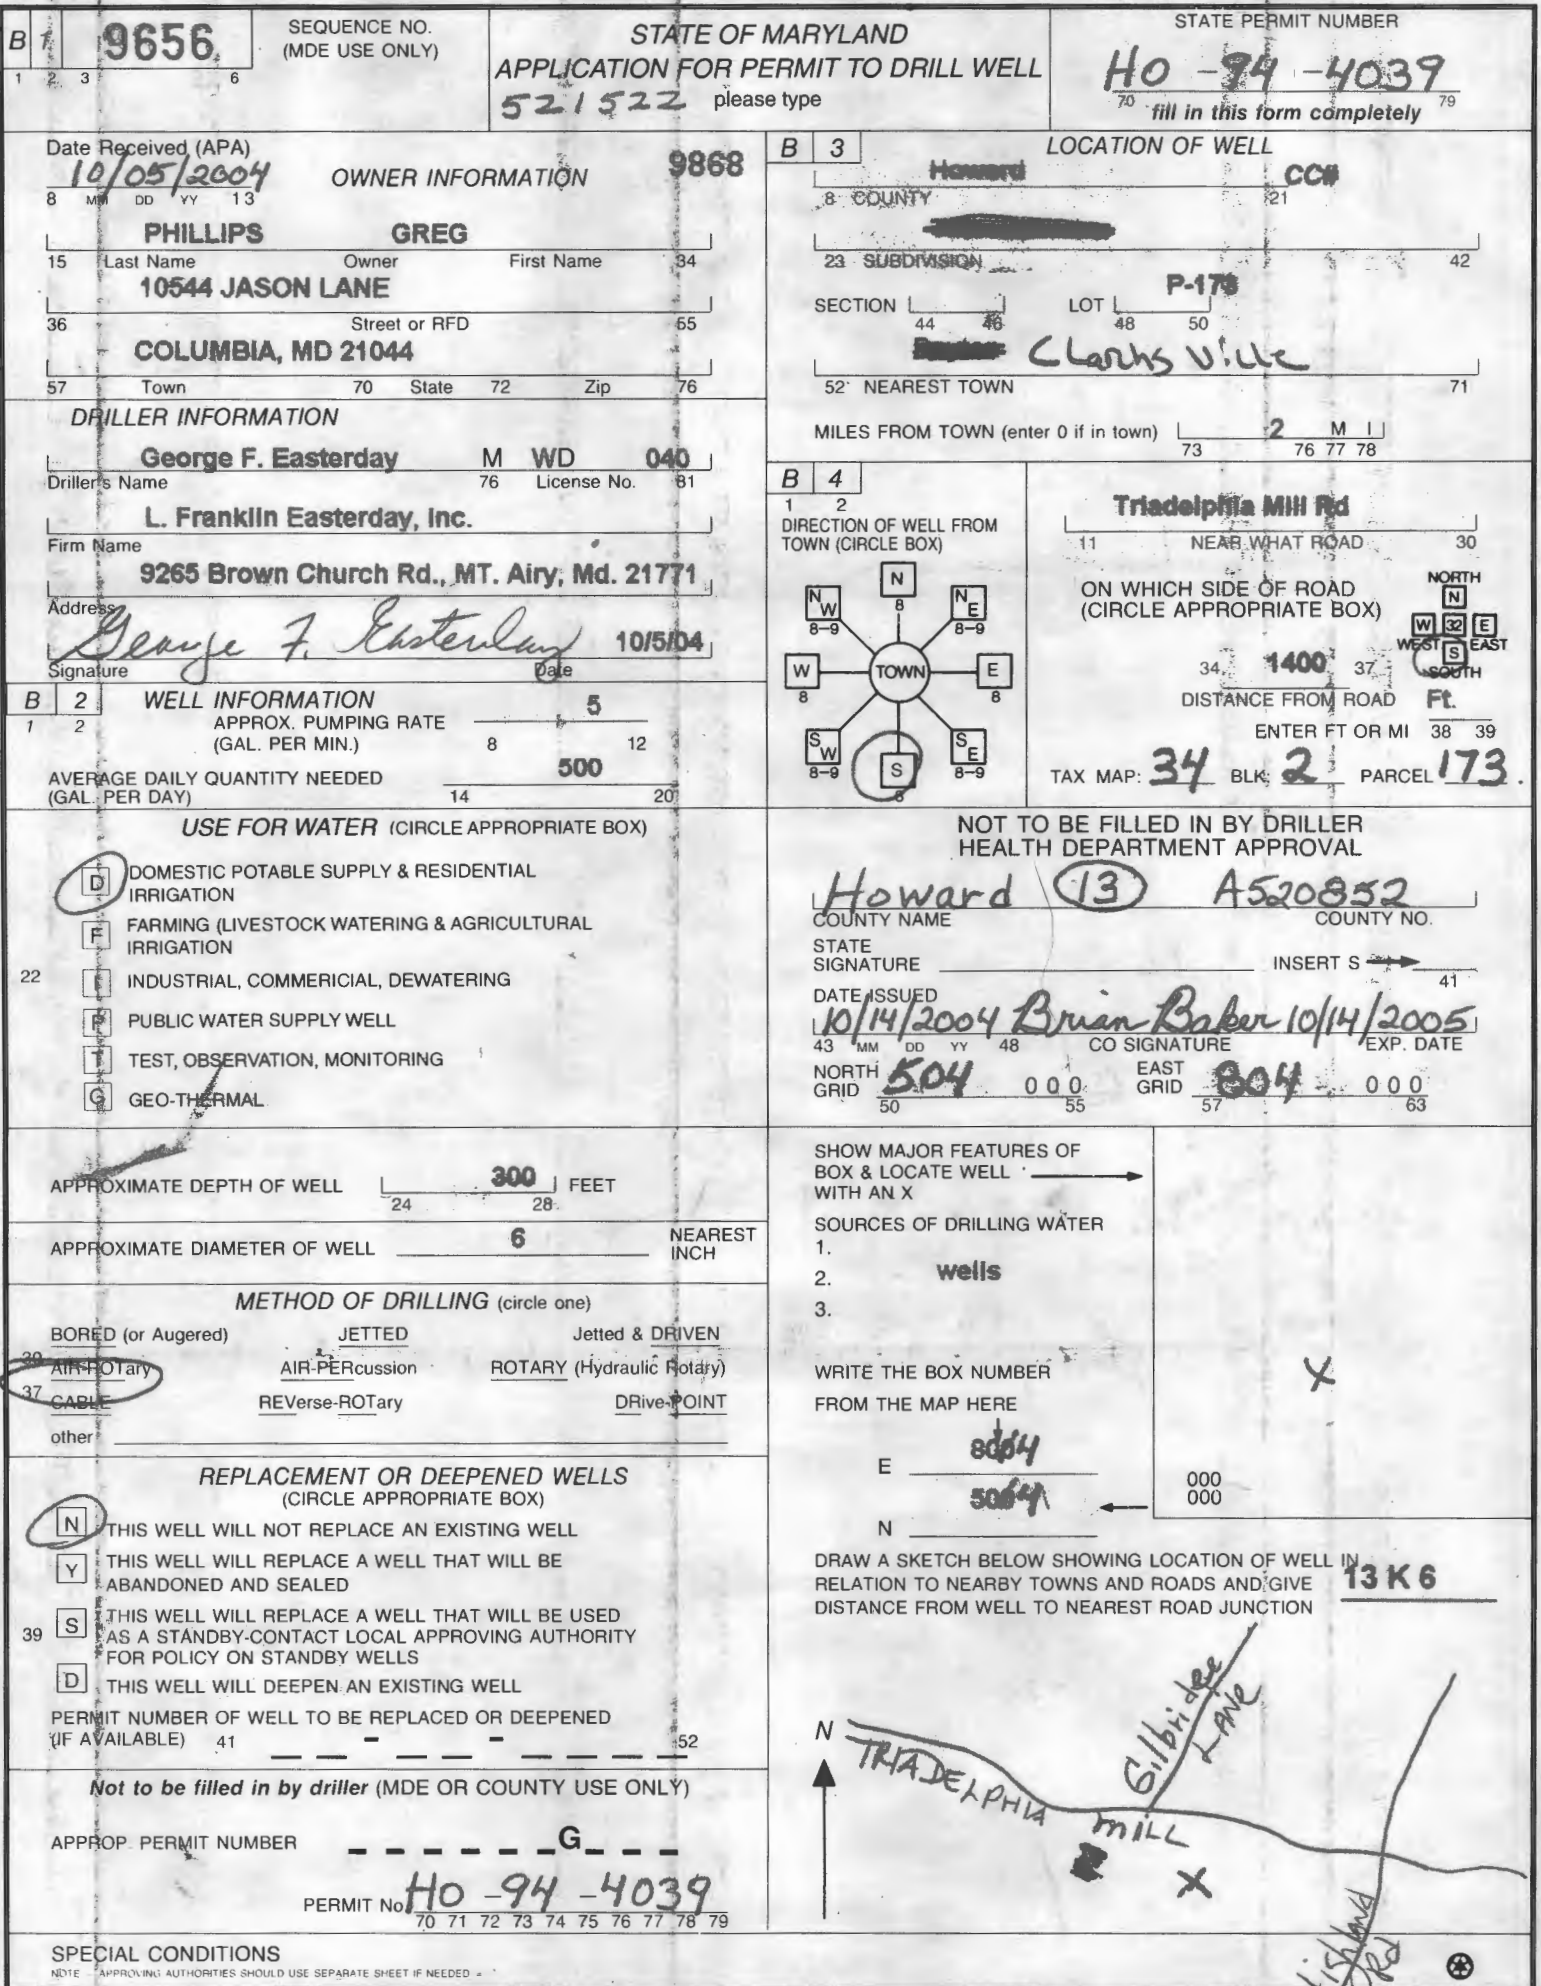 B 1 9656
1 2 3 6
SEQUENCE NO.
(MDE USE ONLY)
STATE OF MARYLAND
APPLICATION FOR PERMIT TO DRILL WELL
521522 please type
STATE PERMIT NUMBER
HO -94 -4039
70 fill in this form completely 79
Date Received (APA)
10/05/2004
8 MM DD YY 13
OWNER INFORMATION
9868
PHILLIPS GREG
15 Last Name Owner First Name 34
10544 JASON LANE
36 Street or RFD 55
COLUMBIA, MD 21044
57 Town 70 State 72 Zip 76
DRILLER INFORMATION
George F. Easterday M WD 040
Driller's Name 76 License No. 81
L. Franklin Easterday, Inc.
Firm Name
9265 Brown Church Rd., MT. Airy, Md. 21771
Address
George F. Easterday 10/5/04
Signature Date
B 2 WELL INFORMATION
1 2
APPROX. PUMPING RATE 5
(GAL. PER MIN.) 8 12
AVERAGE DAILY QUANTITY NEEDED 500
(GAL. PER DAY) 14 20
USE FOR WATER (CIRCLE APPROPRIATE BOX)
D DOMESTIC POTABLE SUPPLY & RESIDENTIAL
IRRIGATION
F FARMING (LIVESTOCK WATERING & AGRICULTURAL
IRRIGATION
22 I INDUSTRIAL, COMMERICIAL, DEWATERING
P PUBLIC WATER SUPPLY WELL
T TEST, OBSERVATION, MONITORING
G GEO-THERMAL
APPROXIMATE DEPTH OF WELL 300 FEET
24 28
APPROXIMATE DIAMETER OF WELL 6 NEAREST
INCH
METHOD OF DRILLING (circle one)
BORED (or Augered) JETTED Jetted & DRIVEN
30 AIR-ROTary AIR-PERcussion ROTARY (Hydraulic Rotary)
37 CABLE REVerse-ROTary DRive-POINT
other
REPLACEMENT OR DEEPENED WELLS
(CIRCLE APPROPRIATE BOX)
N THIS WELL WILL NOT REPLACE AN EXISTING WELL
Y THIS WELL WILL REPLACE A WELL THAT WILL BE
ABANDONED AND SEALED
39 S THIS WELL WILL REPLACE A WELL THAT WILL BE USED
AS A STANDBY-CONTACT LOCAL APPROVING AUTHORITY
FOR POLICY ON STANDBY WELLS
D THIS WELL WILL DEEPEN AN EXISTING WELL
PERMIT NUMBER OF WELL TO BE REPLACED OR DEEPENED
(IF AVAILABLE) 41 - - 52
Not to be filled in by driller (MDE OR COUNTY USE ONLY)
APPROP. PERMIT NUMBER G
PERMIT No HO -94 -4039
70 71 72 73 74 75 76 77 78 79
SPECIAL CONDITIONS
NOTE - APPROVING AUTHORITIES SHOULD USE SEPARATE SHEET IF NEEDED =
B 3 LOCATION OF WELL
Howard CC#
8 COUNTY 21
23 SUBDIVISION 42
SECTION LOT P-173
44 46 48 50
Clarksville
52 NEAREST TOWN 71
MILES FROM TOWN (enter 0 if in town) 2 M I
73 76 77 78
B 4
1 2
DIRECTION OF WELL FROM
TOWN (CIRCLE BOX)
N
8
NW NE
8-9 8-9
W TOWN E
8 8
SW SE
8-9 8-9
S
8
Triadelphia Mill Rd
11 NEAR WHAT ROAD 30
ON WHICH SIDE OF ROAD
(CIRCLE APPROPRIATE BOX)
NORTH
N
W 32 E
WEST S EAST
SOUTH
34 1400 37
DISTANCE FROM ROAD Ft.
ENTER FT OR MI 38 39
TAX MAP: 34 BLK: 2 PARCEL 173.
NOT TO BE FILLED IN BY DRILLER
HEALTH DEPARTMENT APPROVAL
Howard 13 A520852
COUNTY NAME COUNTY NO.
STATE
SIGNATURE INSERT S
41
DATE ISSUED
10/14/2004 Brian Baker 10/14/2005
43 MM DD YY 48 CO SIGNATURE EXP. DATE
NORTH
GRID 504 000
50 55
EAST
GRID 804 000
57 63
SHOW MAJOR FEATURES OF
BOX & LOCATE WELL
WITH AN X
SOURCES OF DRILLING WATER
1.
2. wells
3.
X
WRITE THE BOX NUMBER
FROM THE MAP HERE
E 804
N 504
000
000
DRAW A SKETCH BELOW SHOWING LOCATION OF WELL IN
RELATION TO NEARBY TOWNS AND ROADS AND GIVE
DISTANCE FROM WELL TO NEAREST ROAD JUNCTION
13 K 6
N
TRIADELPHIA MILL
Gilbridee LANE
X
Highland Rd